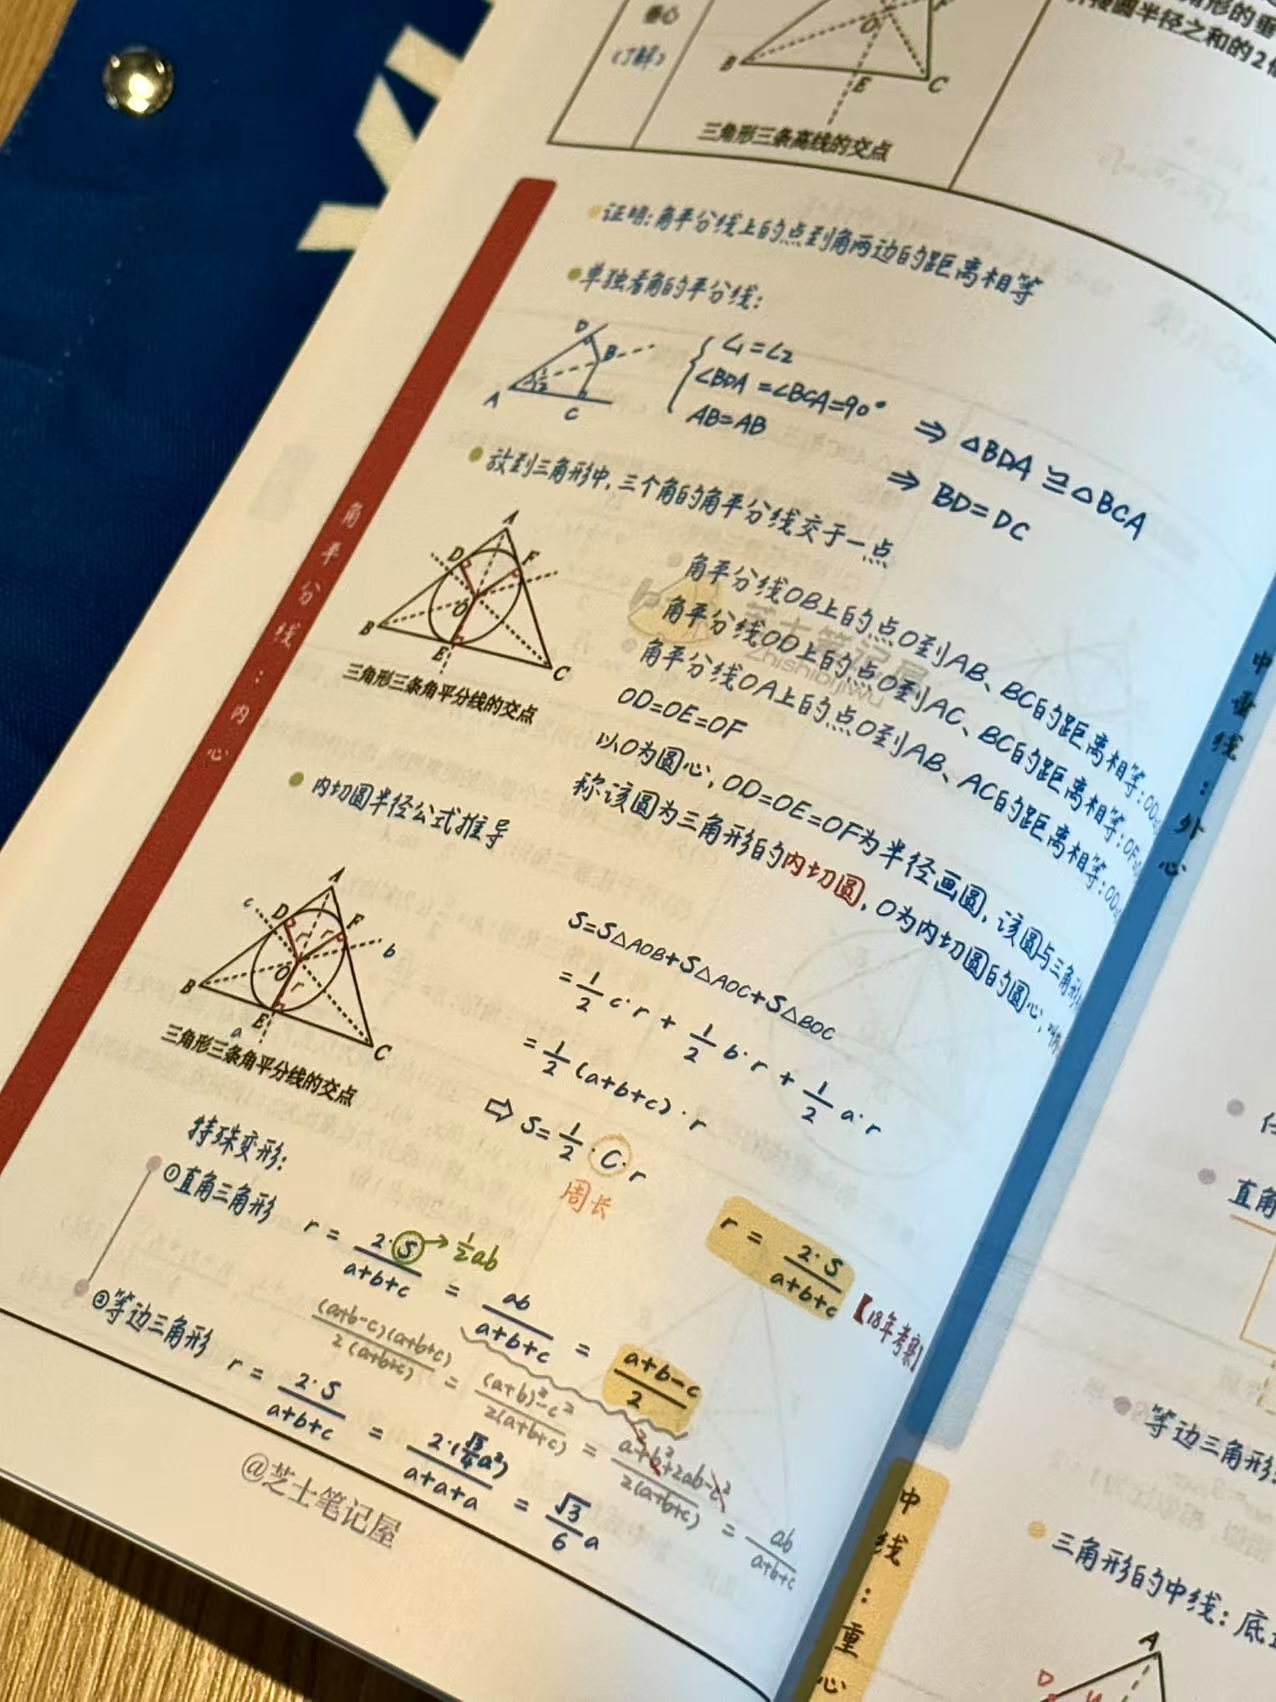 垂心
(了解)
O
B
E
C
三角形三条高线的交点
角形的垂
半径之和的2倍
证明:角平分线上的点到角两边的距离相等
单独看角的平分线:
D
B
1
2
A
C
∠1=∠2
∠BDA=∠BCA=90°
AB=AB
⇒ △BDA≌△BCA
⇒ BD=DC
放到三角形中,三个角的角平分线交于一点
A
D
F
O
B
E
C
三角形三条角平分线的交点
角平分线OB上的点O到AB、BC的距离相等:OD
角平分线OD上的点O到AC、BC的距离相等:OF
角平分线OA上的点O到AB、AC的距离相等:OD
OD=OE=OF
以O为圆心,OD=OE=OF为半径画圆,该圆与三角形
称该圆为三角形的内切圆,O为内切圆的圆心,
角平分线:内心
内切圆半径公式推导
A
c
D
F
r
r
b
O
B
r
E
a
C
三角形三条角平分线的交点
S=S△AOB+S△AOC+S△BOC
=1/2 c·r + 1/2 b·r + 1/2 a·r
=1/2 (a+b+c)·r
⇨ S=1/2·C·r
周长
r = 2·S/(a+b+c)
【18年考察】
特殊变形:
①直角三角形 r = 2·S/(a+b+c) = ab/(a+b+c) = (a+b-c)/2
→1/2ab
(a+b-c)(a+b+c)/2(a+b+c) = ((a+b)²-c²)/2(a+b+c) = (a²+b²+2ab-c²)/2(a+b+c) = ab/(a+b+c)
②等边三角形 r = 2·S/(a+b+c) = 2·(√3/4 a²)/(a+a+a) = √3/6 a
@芝士笔记屋
芝士笔记屋
中垂线:外心
直角
等边三角形:
中线:重心
三角形的中线:底
A
D